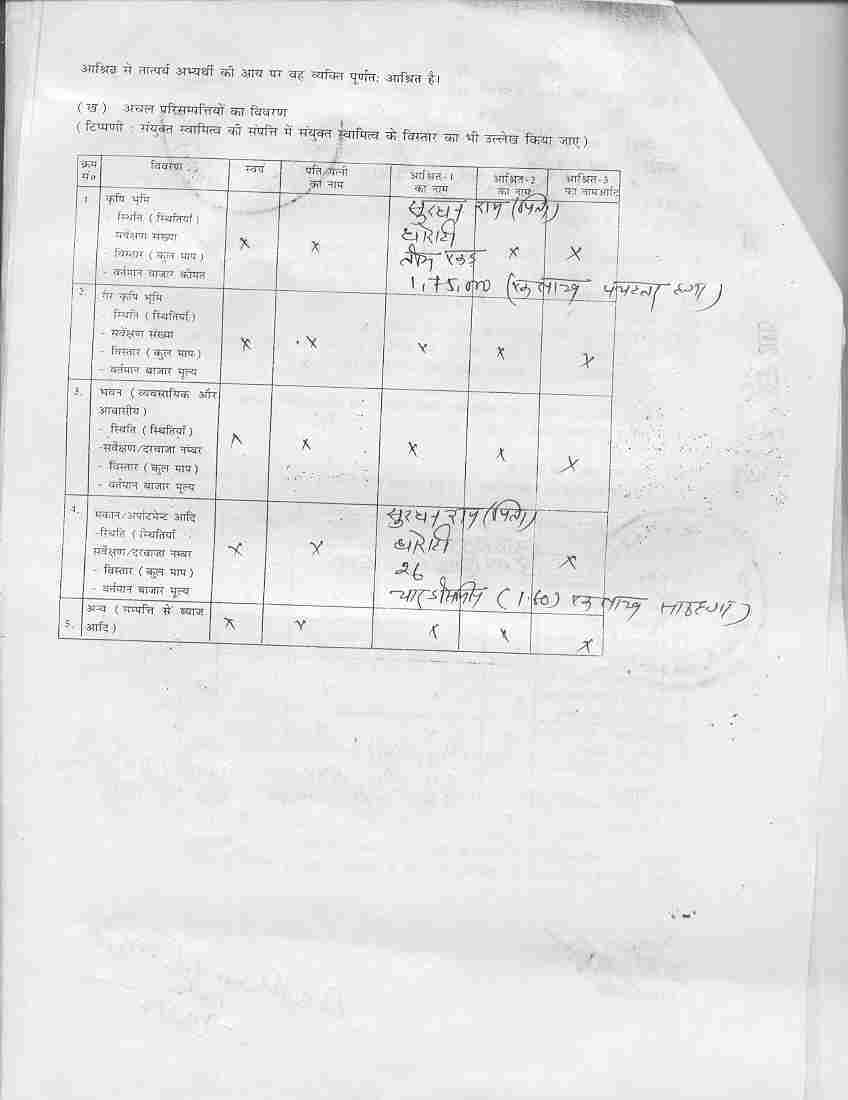 आश्रित से तात्पर्य अभ्यर्थी की आय पर वह व्यक्ति पूर्णतः आश्रित है।
( ख ) अचल परिसम्पत्तियों का विवरण
( टिप्पणी : संयुक्त स्वामित्व की संपत्ति में संयुक्त स्वामित्व के विस्तार का भी उल्लेख किया जाए )
क्रम सं० विवरण स्वयं पति/पत्नी का नाम आश्रित-1 का नाम आश्रित-2 का नाम आश्रित-3 का नामआदि
1. कृषि भूमि
स्थिति ( स्थितियां )
सर्वेक्षण संख्या
- विस्तार ( कुल माप )
- वर्तमान बाजार कीमत
x x x x
राम (पिता)
1,75,000 (एक लाख
2. गैर कृषि भूमि
- स्थिति ( स्थितियाँ )
- सर्वेक्षण संख्या
- विस्तार ( कुल माप )
- वर्तमान बाजार मूल्य
x x x x x
3. भवन ( व्यवसायिक और
आवासीय )
- स्थिति ( स्थितियाँ )
-सर्वेक्षण/दरवाजा नम्बर
- विस्तार ( कुल माप )
- वर्तमान बाजार मूल्य
x x x x x
4. मकान/अपार्टमेन्ट आदि
-स्थिति ( स्थितियाँ
सर्वेक्षण/दरवाजा नम्बर
- विस्तार ( कुल माप )
- वर्तमान बाजार मूल्य
x x x
राम (पिता)
26
(1.60) एक लाख
5. अन्य ( सम्पत्ति से ब्याज
आदि )
x x x x x